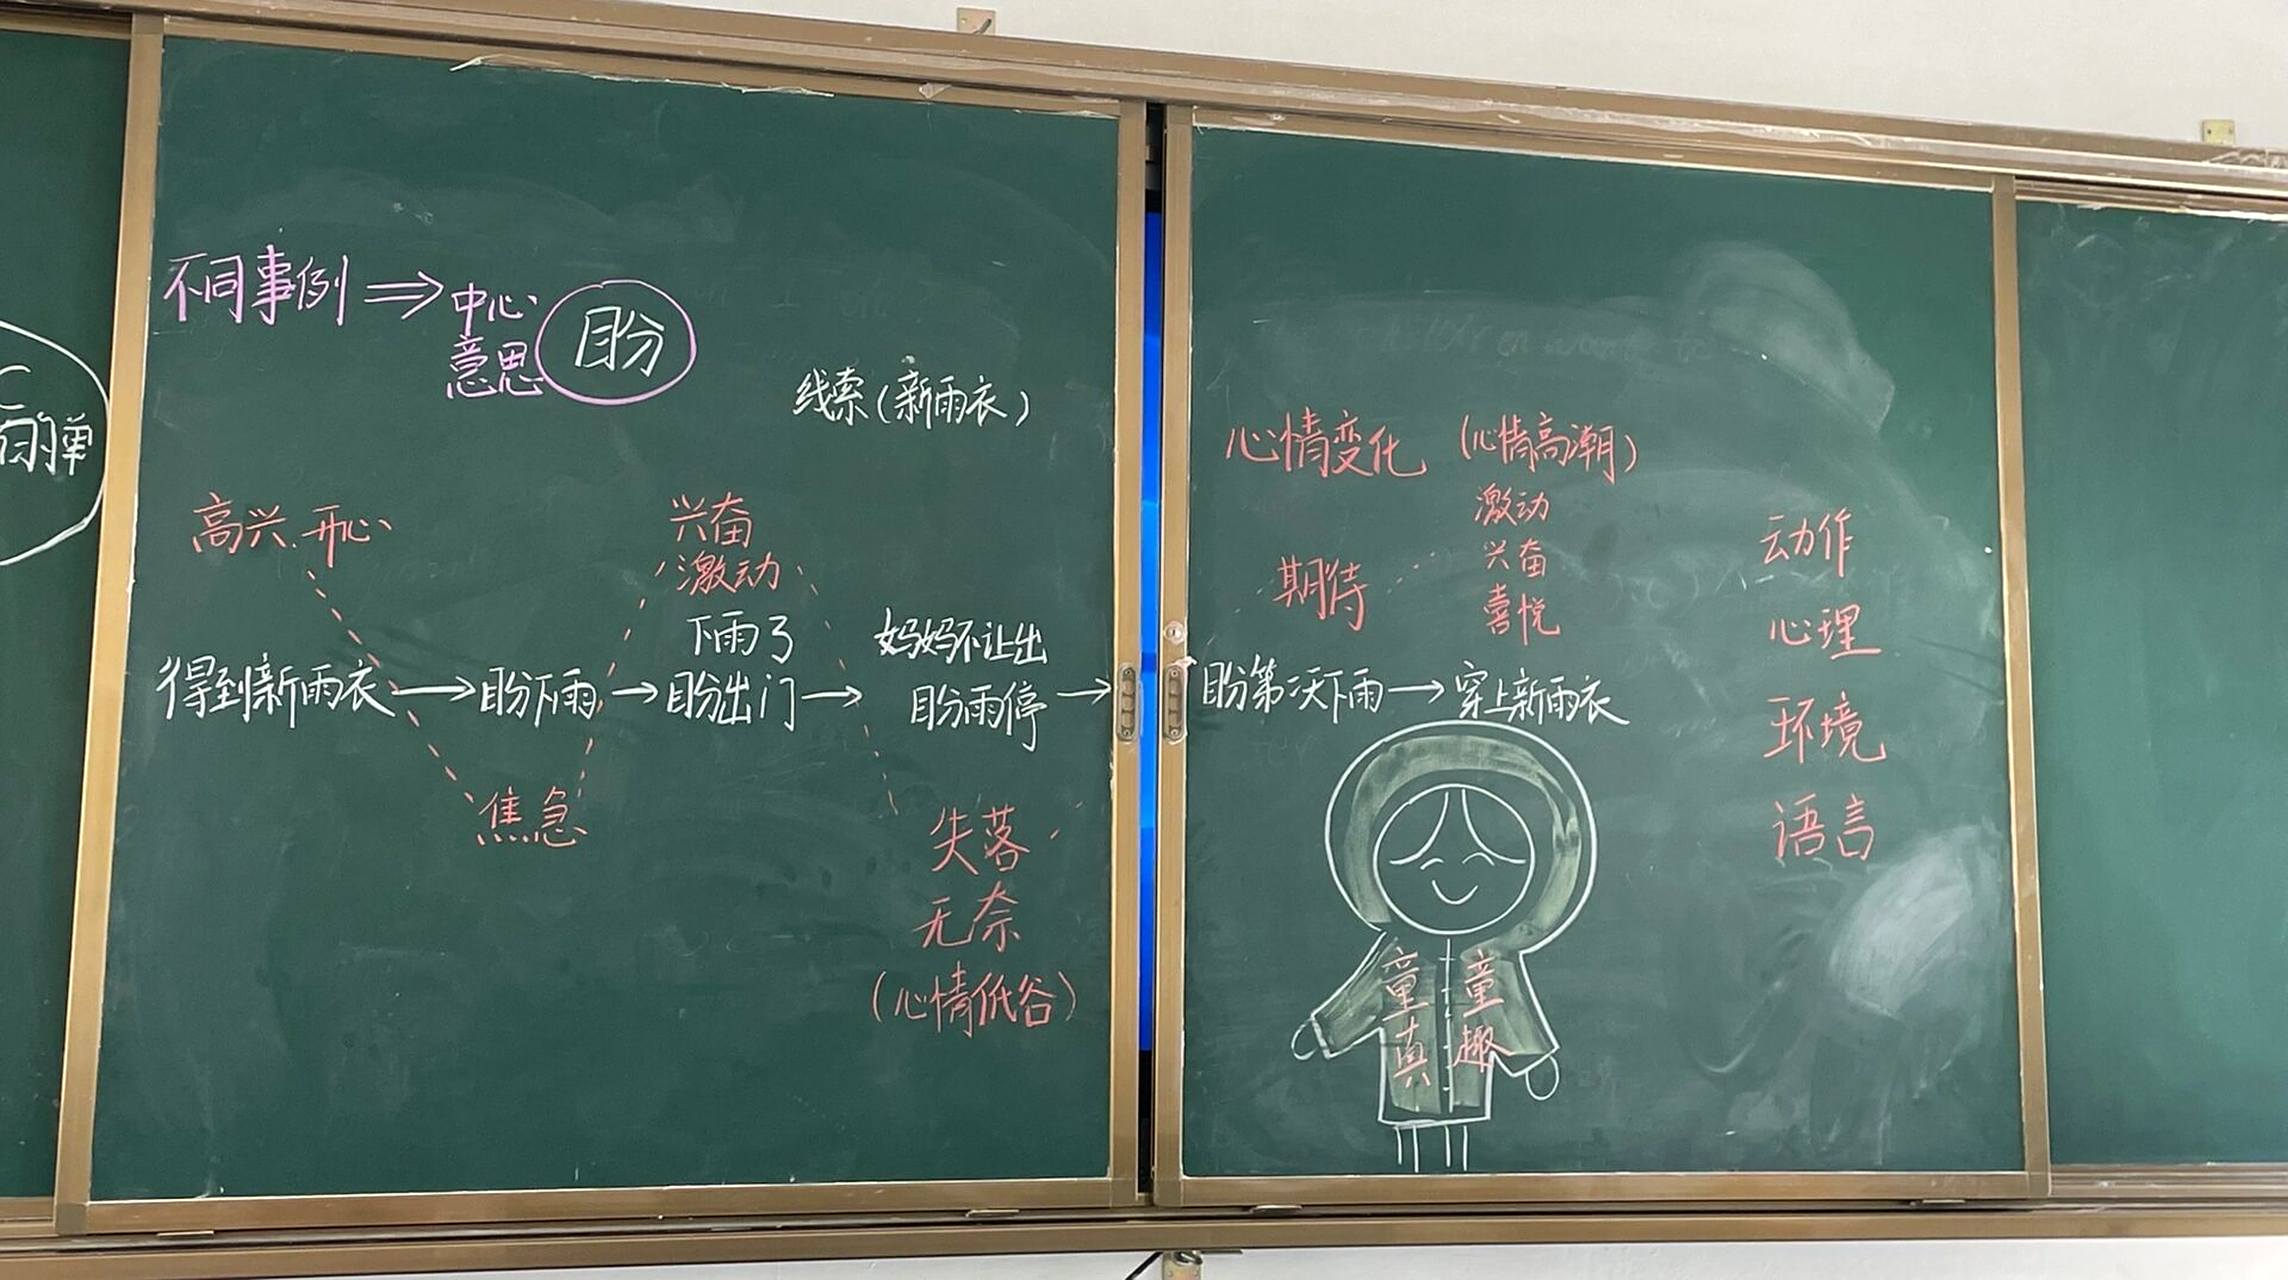 不同事例⇒中心
意思
盼
线索(新雨衣)
高兴、开心
兴奋
激动
下雨了
妈妈不让出
得到新雨衣→盼下雨→盼出门→盼雨停→
焦急
失落
无奈
(心情低谷)
心情变化 (心情高潮)
激动
兴奋
喜悦
期待
盼第二天下雨→穿上新雨衣
动作
心理
环境
语言
童真
童趣